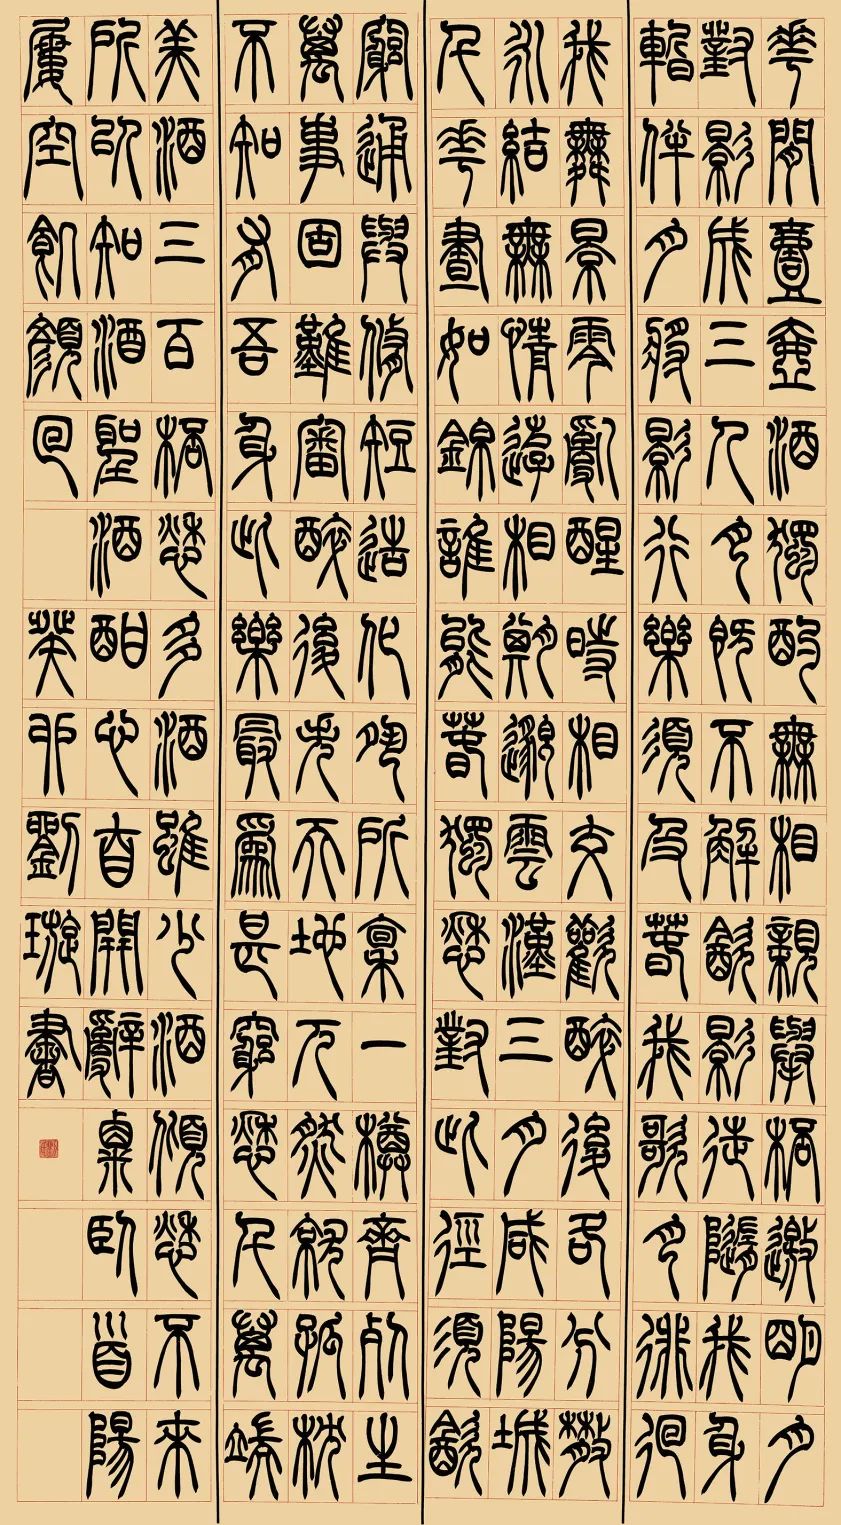 華間壹壺酒獨酌無相親舉桮邀朙月
對影成三人月既不解㱃影徒隨我身
暫伴月將影行樂須及萅我歌月徘徊
我舞景零亂醒時相交歡醉後各分散
永結無情遊相期邈雲漢三月咸陽城
千華晝如錦誰能萅獨愁對此徑須㱃
窮通與修短造化夙所稟一樽齊死生
萬事固難審醉後失天地兀然就孤枕
不知有吾身此樂最爲甚窮愁千萬端
美酒三百桮愁多酒雖少酒傾愁不來
所以知酒聖酒酣心自開辭粟臥首陽
屢空飢顏回 癸卯劉璇書